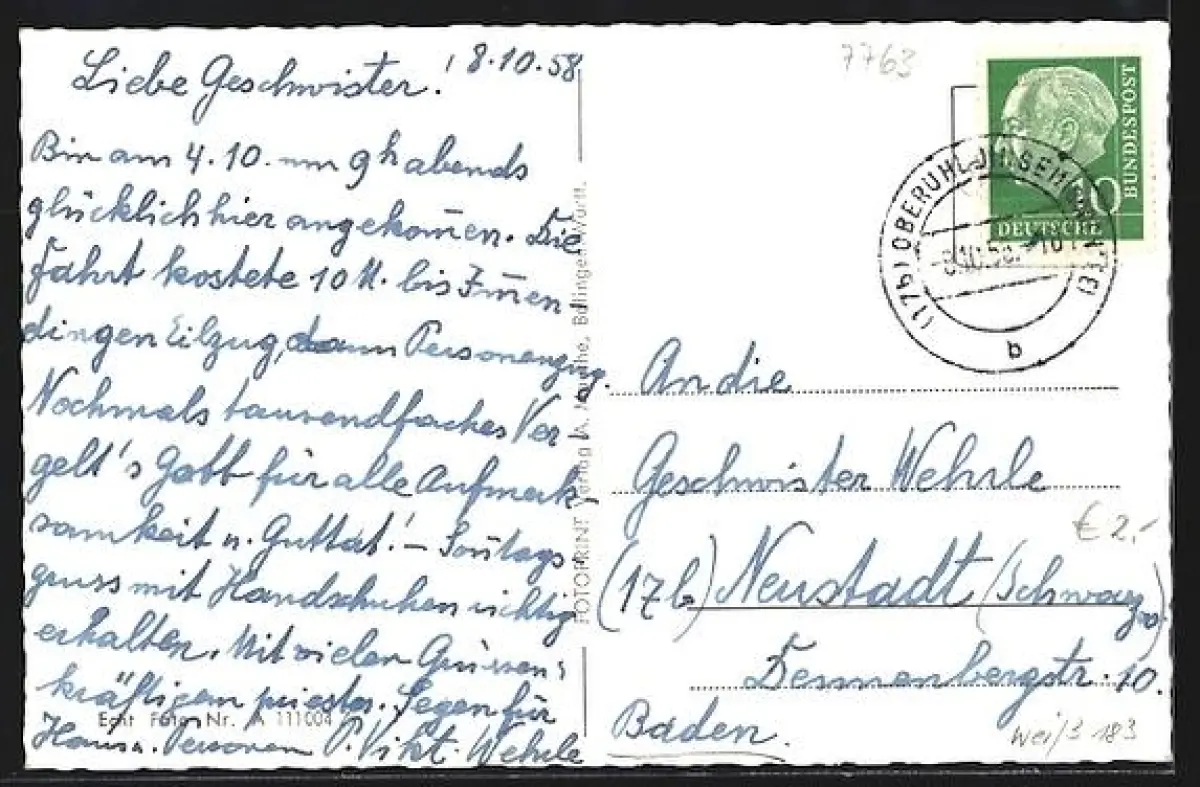 Liebe Geschwister! 8.10.58
Bin am 4.10. um 9h abends
glücklich hier angekom̄en. Die
Fahrt kostete 10 M. bis Im̄en
dingen Eilzug, dann Personenzug.
Nochmals tausendfaches Ver
gelt's Gott für alle Aufmerk-
samkeit u. Guttat! – Sonntags
gruss mit Handschuhen richtig
erhalten. Mit vielen Grüssen,
kräftigem priester. Segen für
Haus u. Personen P. Vikt. Wehrle
Echt Foto Nr. A 111004
FOTOPRINT Verlag A. Jauche, Balingen/Württ.
7763
BUNDESPOST
DEUTSCHE
10
(17b) OBERUHLDINGEN
b
An die
Geschwister Wehrle
€ 2,-
(17b) Neustadt (Schwarzw)
Dennenbergstr. 10.
Baden.
183